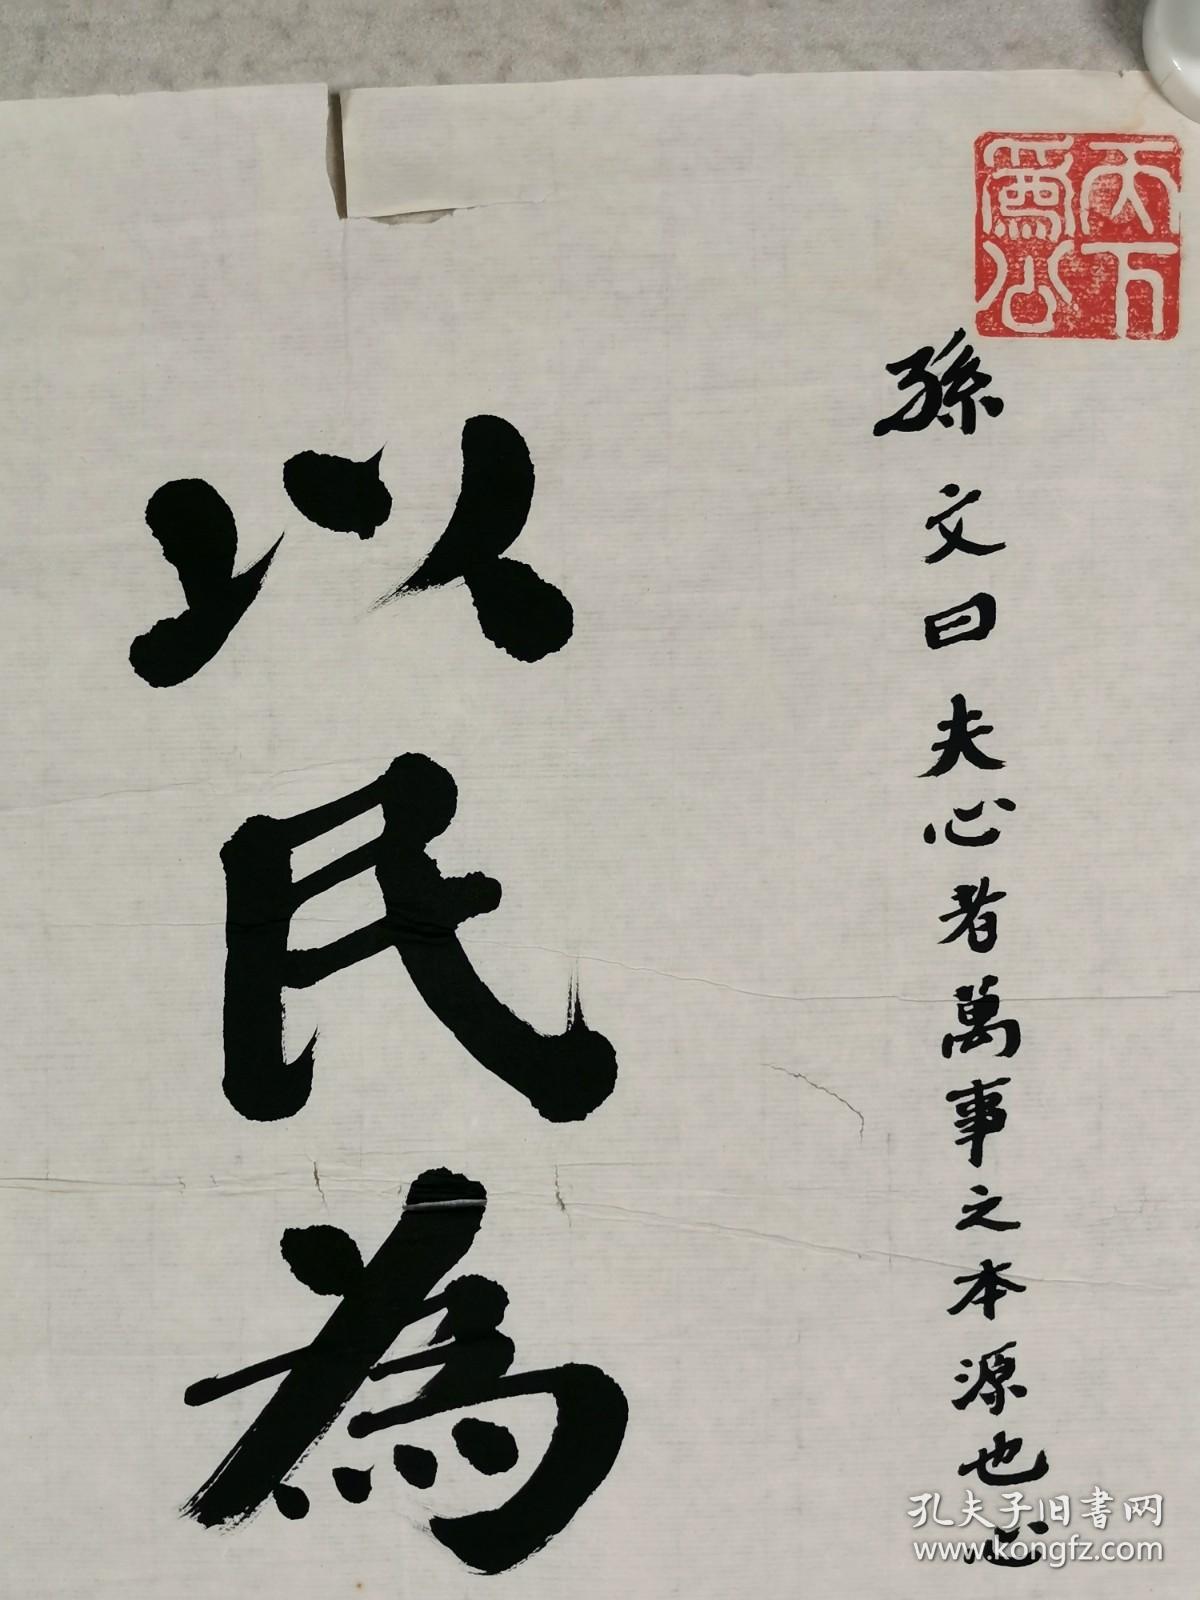 天下
爲公
孫文曰夫心者萬事之本源也心
以民為
孔夫子旧书网
www.kongfz.com